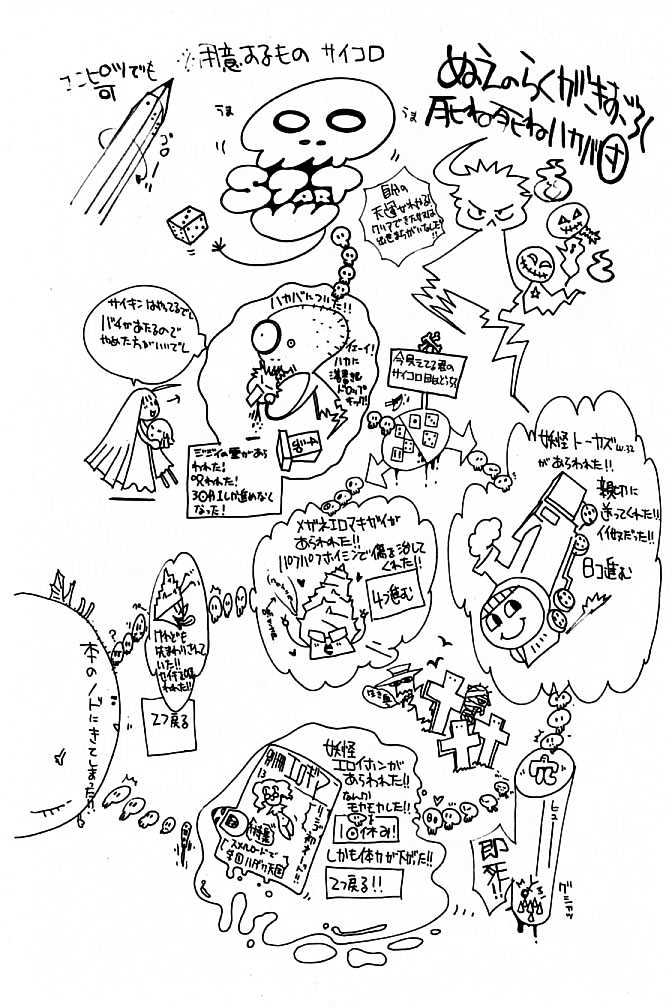 ※用意するもの サイコロ
エンピツでも
可
ぬえのらくがきすごろく
死ね死ねハカバ村
うま
うま
START
コロ
自分の
天運がわかる!
クリアできた方は
出世まちがいなし!!
サイキンはやってるでし
バチがあたるので
やめた方がいいでし
ハカバについた!!
イェーイ!
ハカに
ドロップ
キック!
ジジイの霊があら
われた!
呪われた!
3回1しか進めなく
なった!
今見えてる君の
サイコロの目はどっち?
妖怪トーカズ
があらわれた!!
親切に
送ってくれた!!
イイ奴だった!!
8コ進む
メガネエロマキガイが
あらわれた!!
パフパフホイミンで傷を治して
くれた!!
4つ進む
けれども
先まわりされて
いた!!
2つ戻る
本のノドにきてしまった!!
妖怪
エロイホンが
あらわれた!!
なんか
モヤモヤした!!
1回休み!
しかも体力が下がった!!
2つ戻る!!
別冊エロギン
13
ヒュー
即
死!!